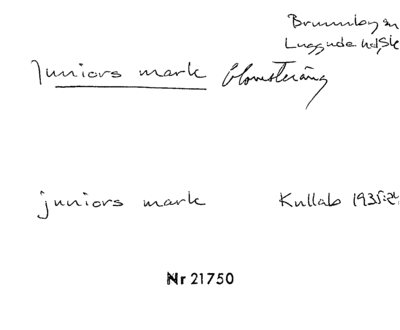 Brunnby sn
Luggude hd, Sk
Juniors mark blomsteräng
juniors mark Kullab 1935:24
Nr 21750